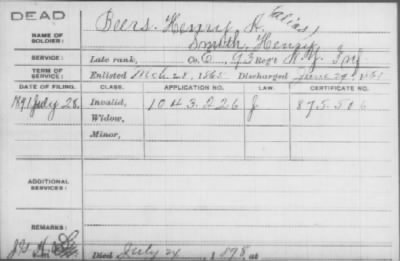 DEAD
Beers, Henry A. (alias)
NAME OF SOLDIER: Smith, Henry
SERVICE: Late rank, Co. E, 93 Reg't N.Y. Inf
TERM OF SERVICE: Enlisted Mch 28, 1865 Discharged June 29, 1865
DATE OF FILING. CLASS. APPLICATION NO. LAW. CERTIFICATE NO.
1891 July 28. Invalid, 1043226 J 875.506
Widow,
Minor,
ADDITIONAL SERVICES:
REMARKS:
Died July 24, 1898, at